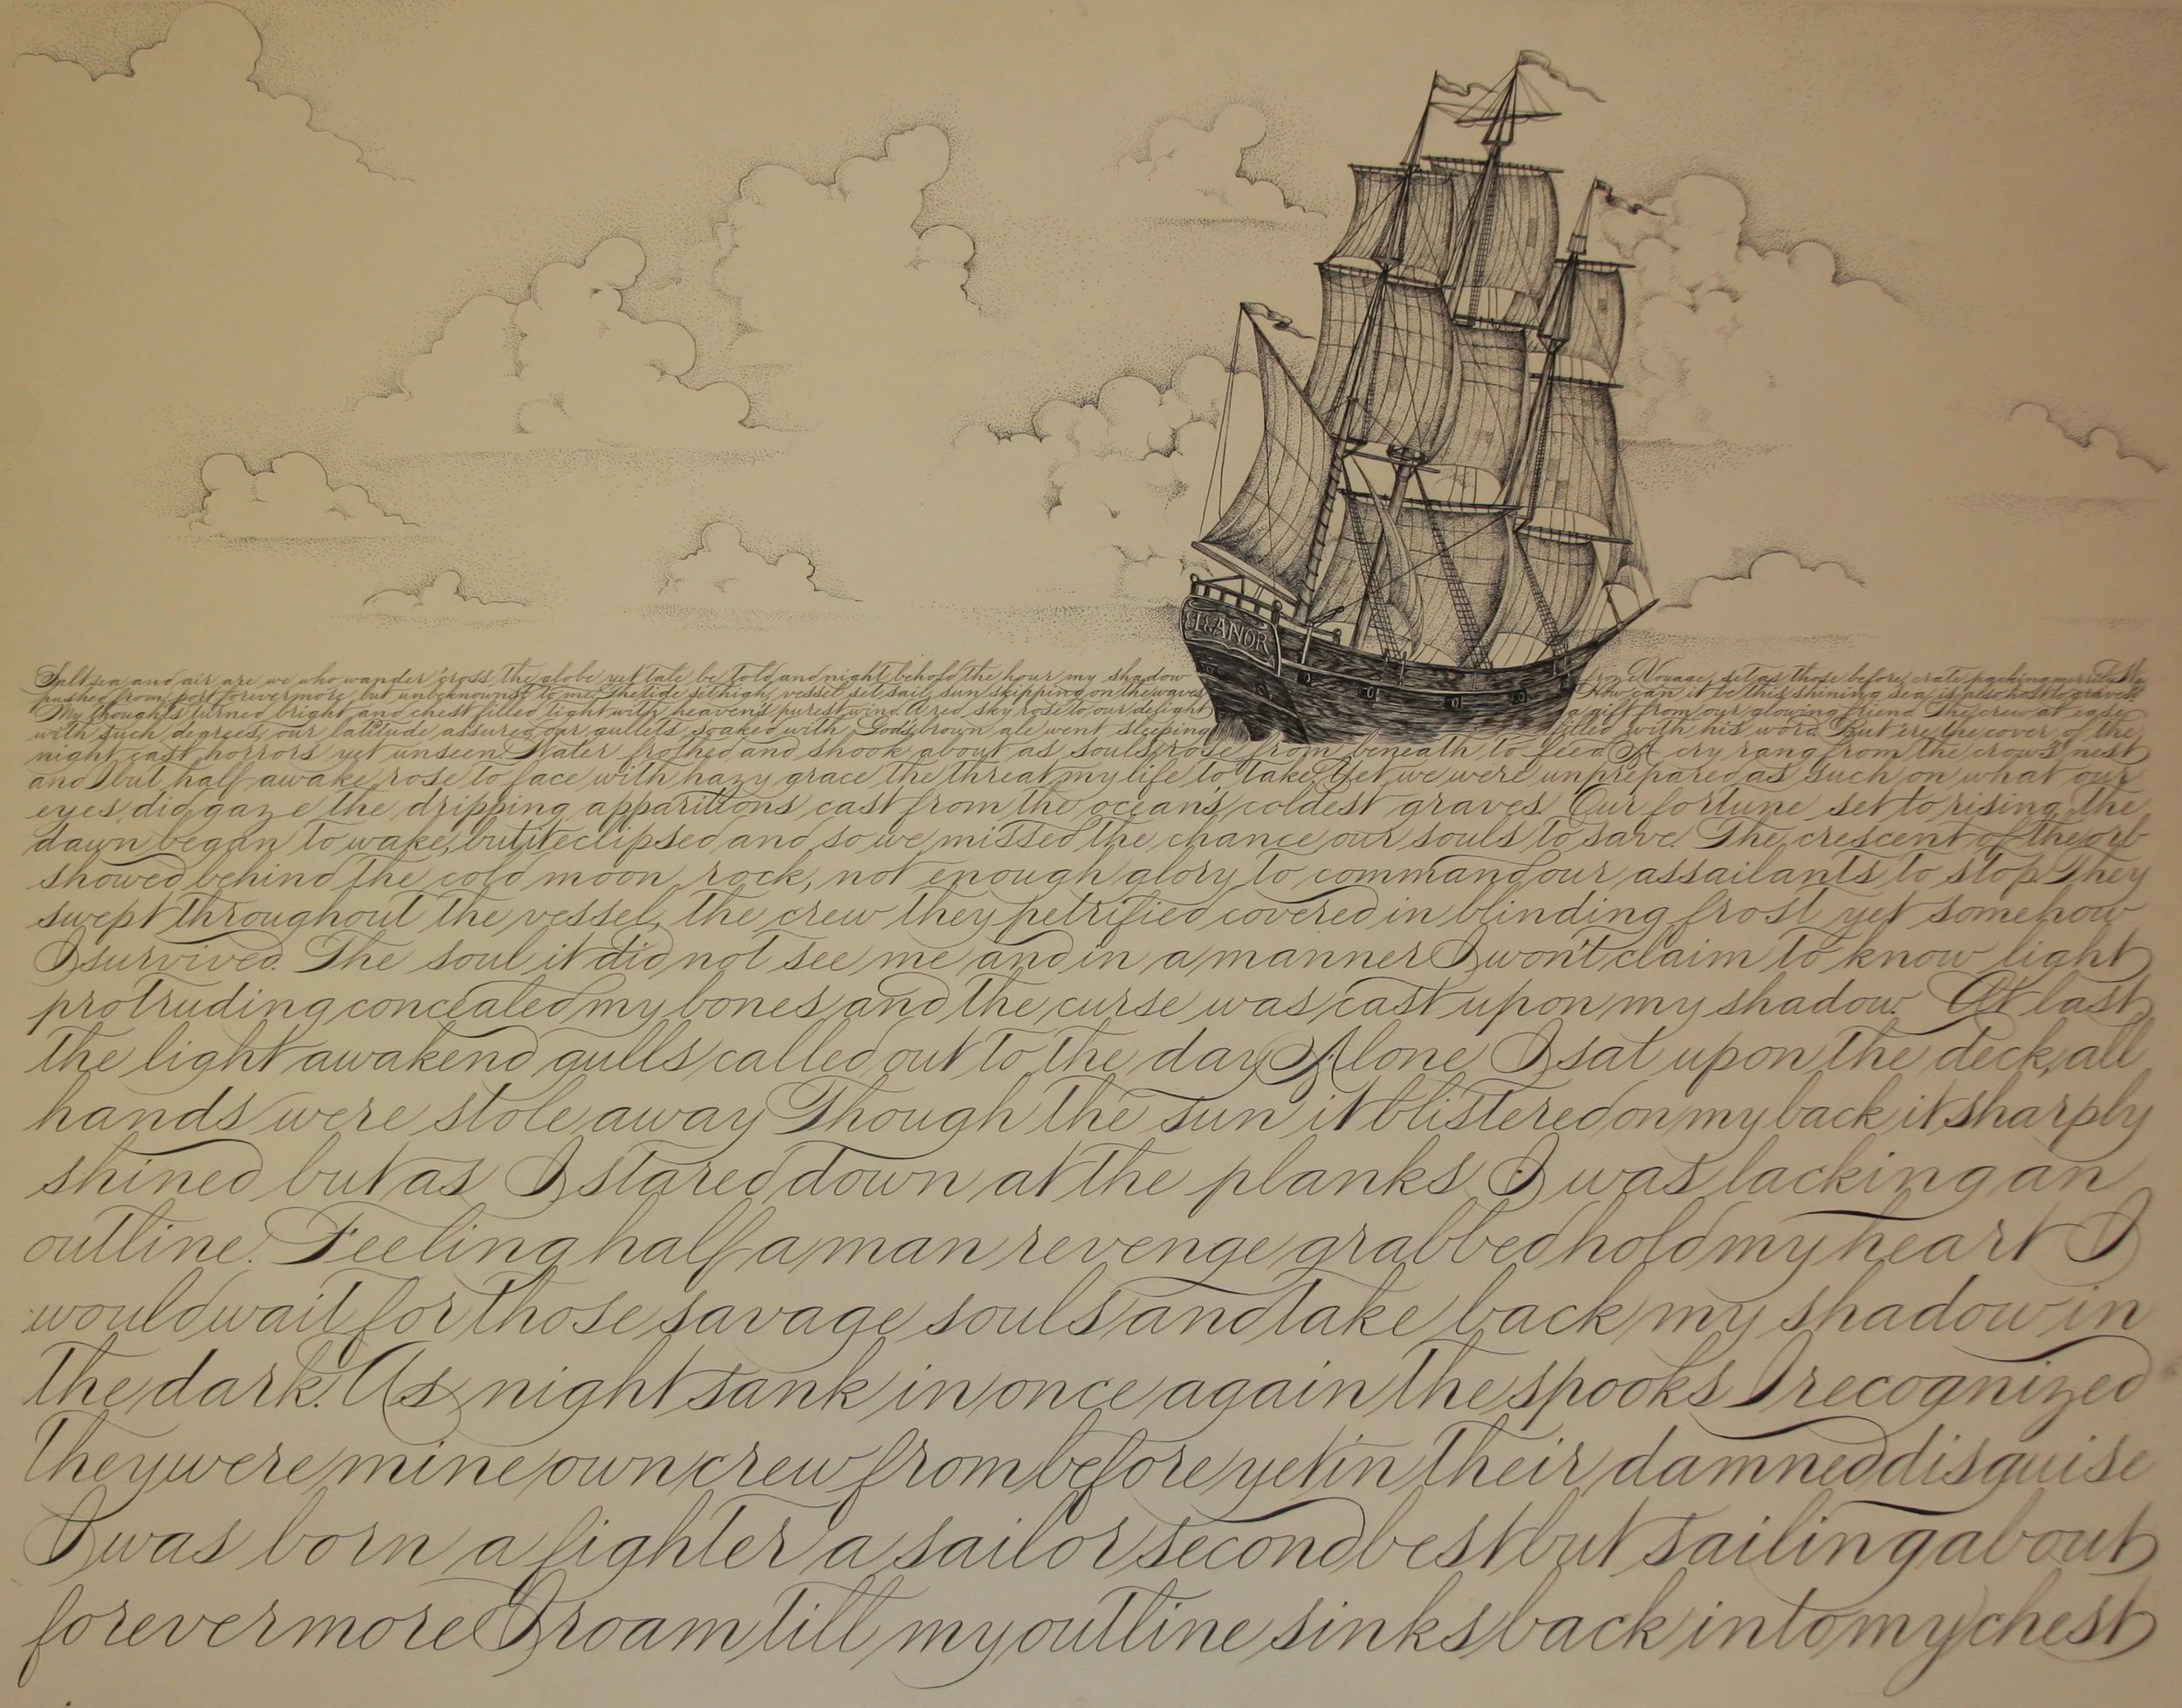 ELEANOR
Salt sea and air are we who wander 'cross the globe yet tale be told and night behold the hour my shadow from Voyage, set as those before, crate packing merrily My
pushed from port forevermore but unbeknownst to me. The tide set high, vessel set sail, sun skipping on the waves How can it be this shining sea is also host to graves?
My thoughts turned bright and chest filled tight with heaven's purest wind A red sky rose to our delight a gift from our glowing friend. The crew at ease
with such degrees, our latitude assured our gullets soaked with God's brown ale went sleeping filled with his word. But ere the cover of the
night cast horrors yet unseen. Water frothed and shook about as souls rose from beneath to feed A cry rang from the crow's nest
and I but half awake rose to face with hazy grace the threat my life to take. Yet we were unprepared as such on what our
eyes did gaze the dripping apparitions cast from the ocean's coldest graves. Our fortune set to rising, the
dawn began to wake, but it eclipsed and so we missed the chance our souls to save. The crescent of the orb
showed behind the cold moon rock, not enough glory to command our assailants to stop. They
swept throughout the vessel, the crew they petrified covered in blinding frost yet somehow
I survived. The soul it did not see me and in a manner I won't claim to know light
protruding concealed my bones and the curse was cast upon my shadow. At last
the light awakend gulls called out to the day Alone I sat upon the deck, all
hands were stole away Though the sun it blistered on my back it sharply
shined but as I stared down at the planks I was lacking an
outline. Feeling half a man revenge grabbed hold my heart I
would wait for those savage souls and take back my shadow in
the dark. As night sank in once again the spooks I recognized
They were mine own crew from before yet in their damned disguise
I was born a fighter a sailor second best but sailing about
forevermore I roam till my outline sinks back into my chest